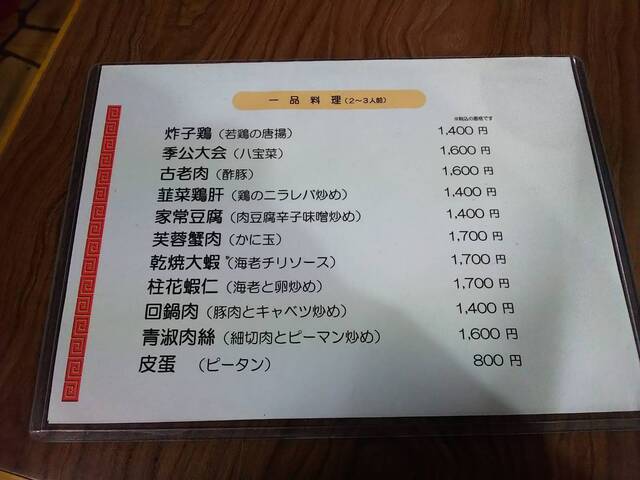 一品料理(2～3人前)
※税込の価格です
炸子鶏（若鶏の唐揚） 1,400 円
季公大会（八宝菜） 1,600 円
古老肉（酢豚） 1,600 円
韮菜鶏肝（鶏のニラレバ炒め） 1,400 円
家常豆腐（肉豆腐辛子味噌炒め） 1,400 円
芙蓉蟹肉（かに玉） 1,700 円
乾焼大蝦（海老チリソース） 1,700 円
桂花蝦仁（海老と卵炒め） 1,700 円
回鍋肉（豚肉とキャベツ炒め） 1,400 円
青淑肉絲（細切肉とピーマン炒め） 1,600 円
皮蛋 （ピータン） 800 円